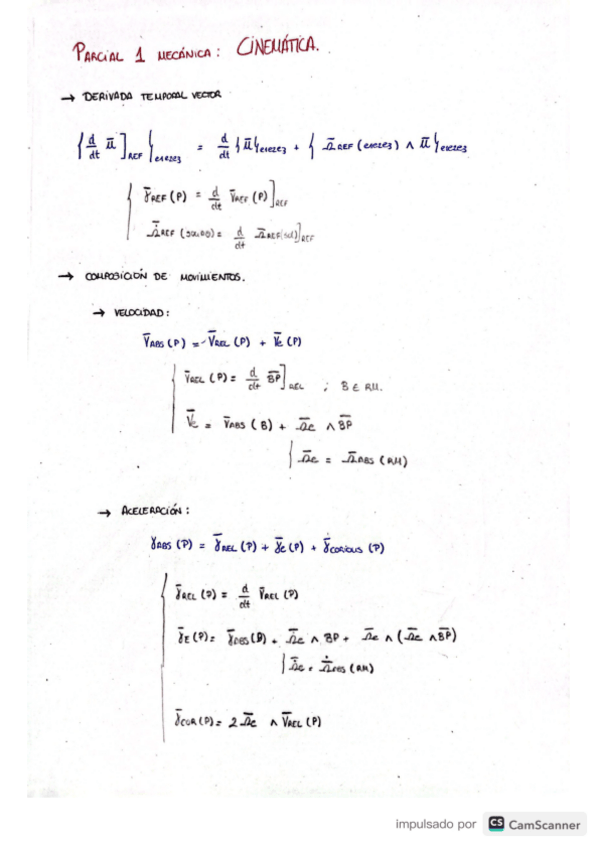 PARCIAL 1 MECÁNICA: CINEMÁTICA.
→ DERIVADA TEMPORAL VECTOR
{d/dt ū]REF}e1e2e3 = d/dt {ū}e1e2e3 + {Ω̄REF (e1e2e3) ∧ ū}e1e2e3
γ̄REF (P) = d/dt v̄REF (P)]REF
Ω̄̇REF (sólido) = d/dt Ω̄REF(sol)]REF
→ COMPOSICIÓN DE MOVIMIENTOS.
→ VELOCIDAD:
v̄ABS (P) = v̄REL (P) + v̄e (P)
v̄REL (P) = d/dt B̄P̄]REL ; B ∈ RM.
v̄e = v̄ABS (B) + Ω̄e ∧ B̄P̄
{Ω̄e = Ω̄ABS (RM)
→ ACELERACIÓN:
γABS (P) = γ̄REL (P) + γ̄e (P) + γ̄CORIOLIS (P)
γ̄REL (P) = d/dt v̄REL (P)
γ̄E (P) = γ̄ABS (B) + Ω̄̇e ∧ BP + Ω̄e ∧ (Ω̄e ∧ B̄P̄)
{Ω̄̇e = Ω̄̇ABS (RM)
γ̄COR (P) = 2 Ω̄e ∧ v̄REL (P)
impulsado por CS CamScanner